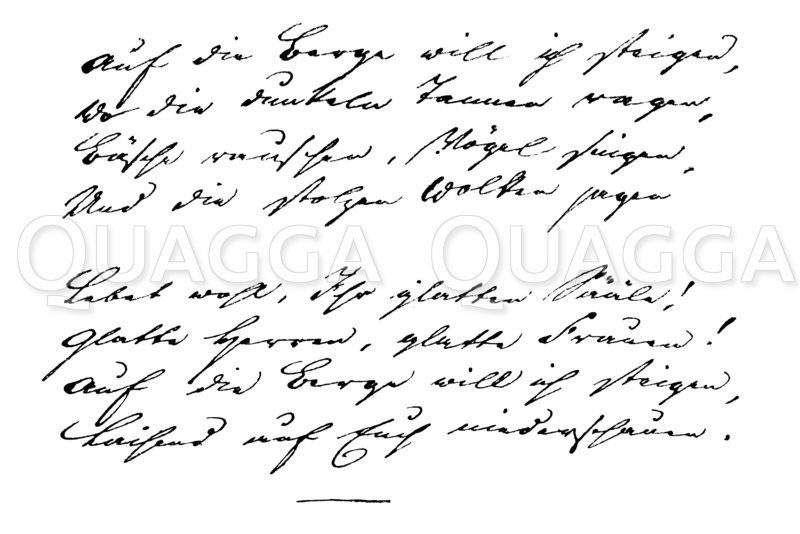 Auf die Berge will ich steigen,
Wo die dunkeln Tannen ragen,
Bäche rauschen, Vögel singen,
Und die stolzen Wolken jagen
QUAGGA QUAGGA
Lebet wohl, Ihr glatten Sääle!
Glatte Herren, glatte Frauen!
Auf die Berge will ich steigen,
Lachend auf Euch niederschauen.